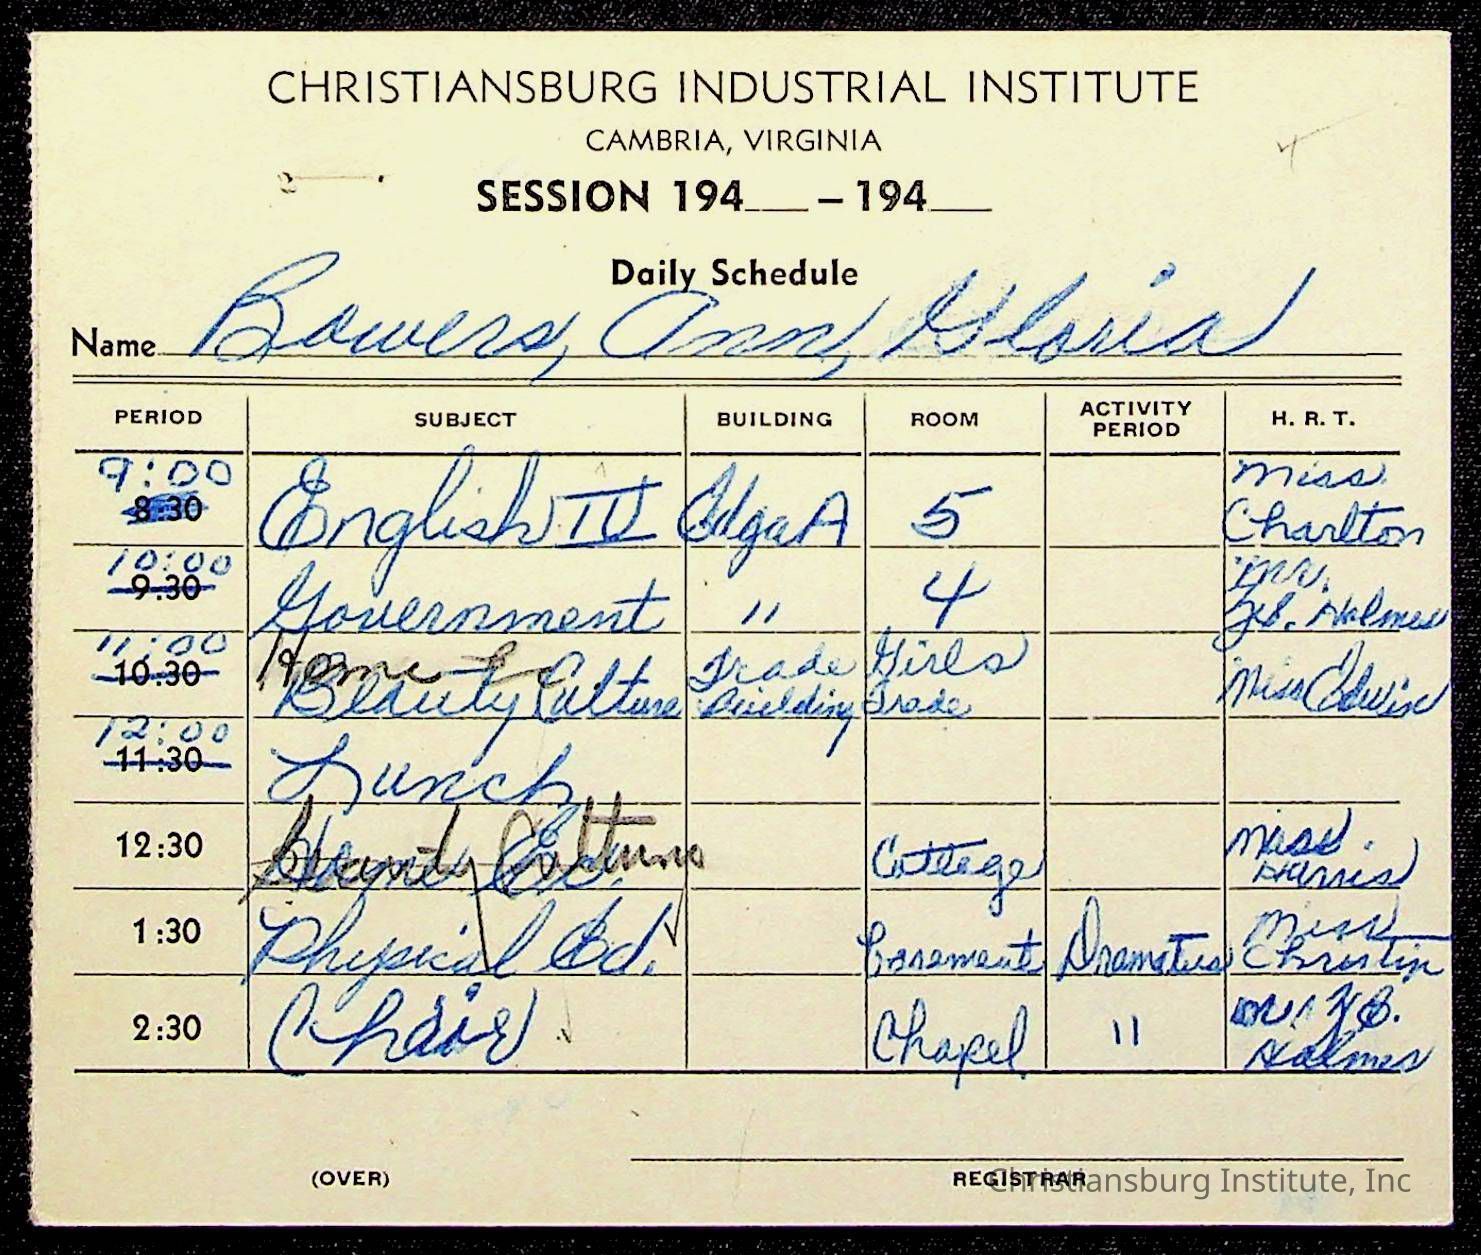 CHRISTIANSBURG INDUSTRIAL INSTITUTE
CAMBRIA, VIRGINIA
SESSION 194___ – 194___
Daily Schedule
Name Bowers, Ann, Gloria
PERIOD SUBJECT BUILDING ROOM ACTIVITY PERIOD H. R. T.
9:00 8:30 English IV Edgar A 5 Miss Charlton
10:00 9:30 Government " 4 Mr. Holmes
11:00 10:30 Home Ec Beauty Culture Trade Building Girls Trade Miss Edwin
12:00 11:30 Lunch
12:30 Beauty Culture Home Ec. Cottege Miss Harris
1:30 Physical Ed. Basement Dramatics Miss
2:30 Choir Chapel " Mr. Holmes
(OVER) REGISTRAR
Christiansburg Institute, Inc